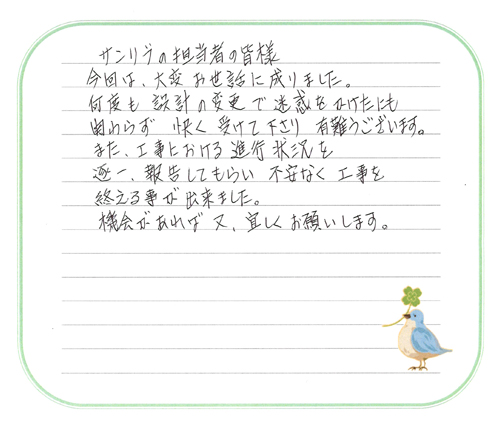 サンリブの担当者の皆様
今回は、大変お世話に成りました。
何度も設計の変更で迷惑をかけたにも
関わらず 快く受けて下さり 有難うございます。
また、工事における進行状況を
逐一、報告してもらい 不安なく工事を
終える事が出来ました。
機会があれば又、宜しくお願いします。